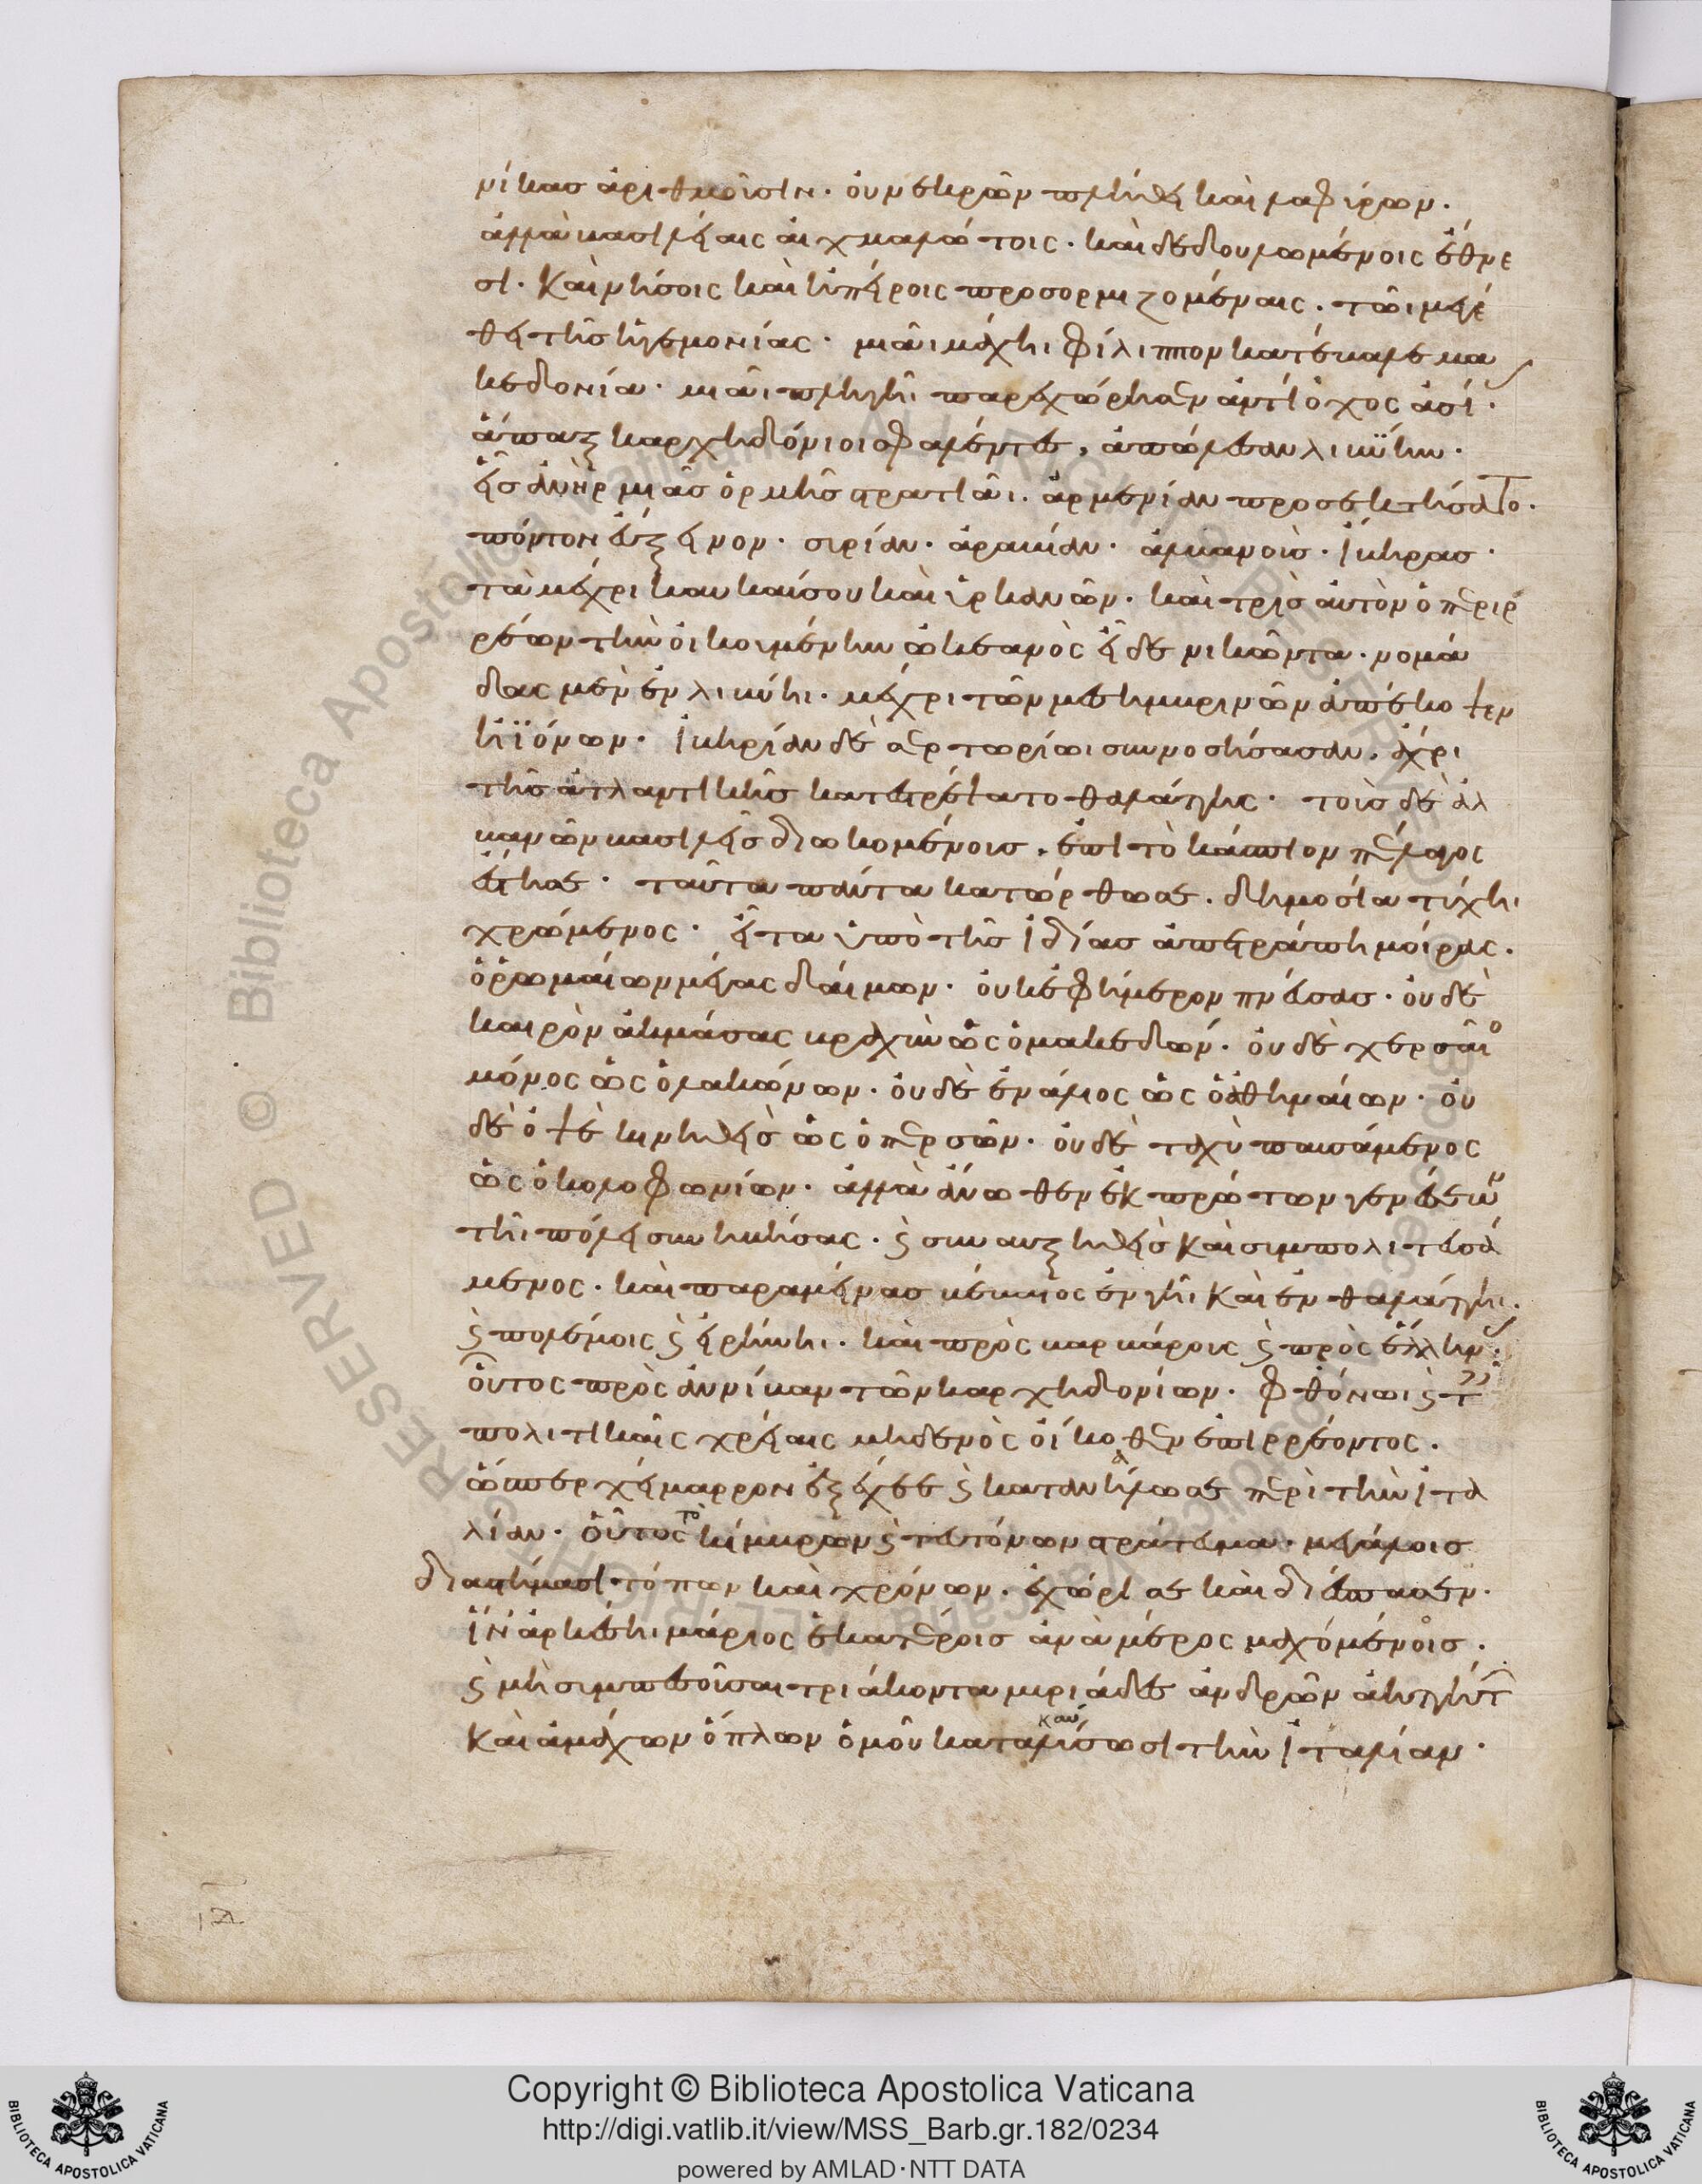 νίκας ἀριθμοῦσιν· οὐ νεκρῶν πλήθει καὶ λαφύρων·
ἀλλὰ βασιλεῖαις αἰχμαλώτοις· καὶ δεδουλωμένοις ἔθνε
σι· καὶ νήσοις καὶ ἠπείροις προσοριζομέναις· τῶι μεγέ
θει τῆς ἡγεμονίας· μιᾶι μάχηι φίλιππον κατέβαλε μα
κεδονία· μιᾶι πληγῆι παρεχώρησεν ἀντίοχος ἀσί·
ἅπαξ καρχηδόνιοι σφαλέντες, ἀπώλεσαν λιβύην·
εἷς ἀνὴρ μιᾶς ὁρμῆς στρατιᾶι· ἀρμενίαν προσεκτήσατο·
πόντον εὔξεινον· συρίαν· ἀραβίαν· ἀλβανοὺς· ἴβηρας·
τὰ μέχρι καυκάσου καὶ ὑρκανῶν· καὶ τρὶς αὐτὸν ὁ περιρ
ρέων τὴν οἰκουμένην ὠκεανὸς εἶδε νικῶντα· νομά
δας μὲν ἐν λιβύηι· μέχρι τῶν μεσημβρινῶν ἀπέκοψεν
ἠϊόνων· ἰβηρίαν δὲ σερτωρίωι συννοσήσασαν· ἄχρι
τῆς ἀτλαντικῆς κατεστρέψατο θαλάττης· τοὺς δὲ ἀλ
βανῶν βασιλεῖς διωκομένους· ἐπὶ τὸ κάσπιον πέλαγος
ἔστησε· ταῦτα πάντα κατώρθωσε· δημοσία τύχηι
χρώμενος· εἶτα ὑπὸ τῆς ἰδίας ἀνετράπη μοίρας·
ὁ ῥωμαίων μέγας δαίμων· οὐκ ἐφήμερον πνεύσας· οὐδὲ
καιρὸν ἀκμάσας βραχὺν ὡς ὁ μακεδών· οὐδὲ χερσαῖο
μόνος ὡς ὁ λακώνων· οὐδὲ ἐνάλιος ὡς ὁ ἀθηναίων· οὐ
δὲ ὀψὲ κινηθεὶς ὡς ὁ περσῶν· οὐδὲ ταχὺ παυσάμενος
ὡς ὁ κολοφωνίων· ἀλλὰ ἄνωθεν ἐκ πρώτων γενέσεων
τῆι πόλει συνηβήσας· ϛ συναυξηθεὶς καὶ συμπολιτευσά
μενος· καὶ παραμείνας βέβαιος ἐν γῆι καὶ ἐν θαλάττηι·
ϛ πολέμοις ϛ εἰρήνηι· καὶ πρὸς βαρβάρους ϛ πρὸς ἕλλην·
οὗτος πρὸς ἀννίβαν τῶν καρχηδονίων· φθόνωι ϛ τ
πολιτικαῖς χρείαις μηδενὸς οἴκοθεν ἐπιρρέοντος·
ὥσπερ χείμαρρον ἐξέχεε ϛ κατανήλωσε περὶ τὴν ἰτα
λίαν· οὗτος τὸ κίμβρων ϛ τευτόνων στράτευμα· μεγάλοις
διαστήμασι τόπων καὶ χρόνων· ἐχώρισε καὶ διέσπασεν·
ἵν ἀρκέσηι μάριος ἑκατέροις ἀνὰ μέρος μαχόμενος·
ϛ μὴ συμπεσοῦσαι τριάκοντα μυριάδες ἀνδρῶν ἀηττήτ
καὶ ἀμάχων ὅπλων ὁμοῦ κατακλύσωσι τὴν ἰταλίαν·
Copyright © Biblioteca Apostolica Vaticana
http://digi.vatlib.it/view/MSS_Barb.gr.182/0234
powered by AMLAD·NTT DATA